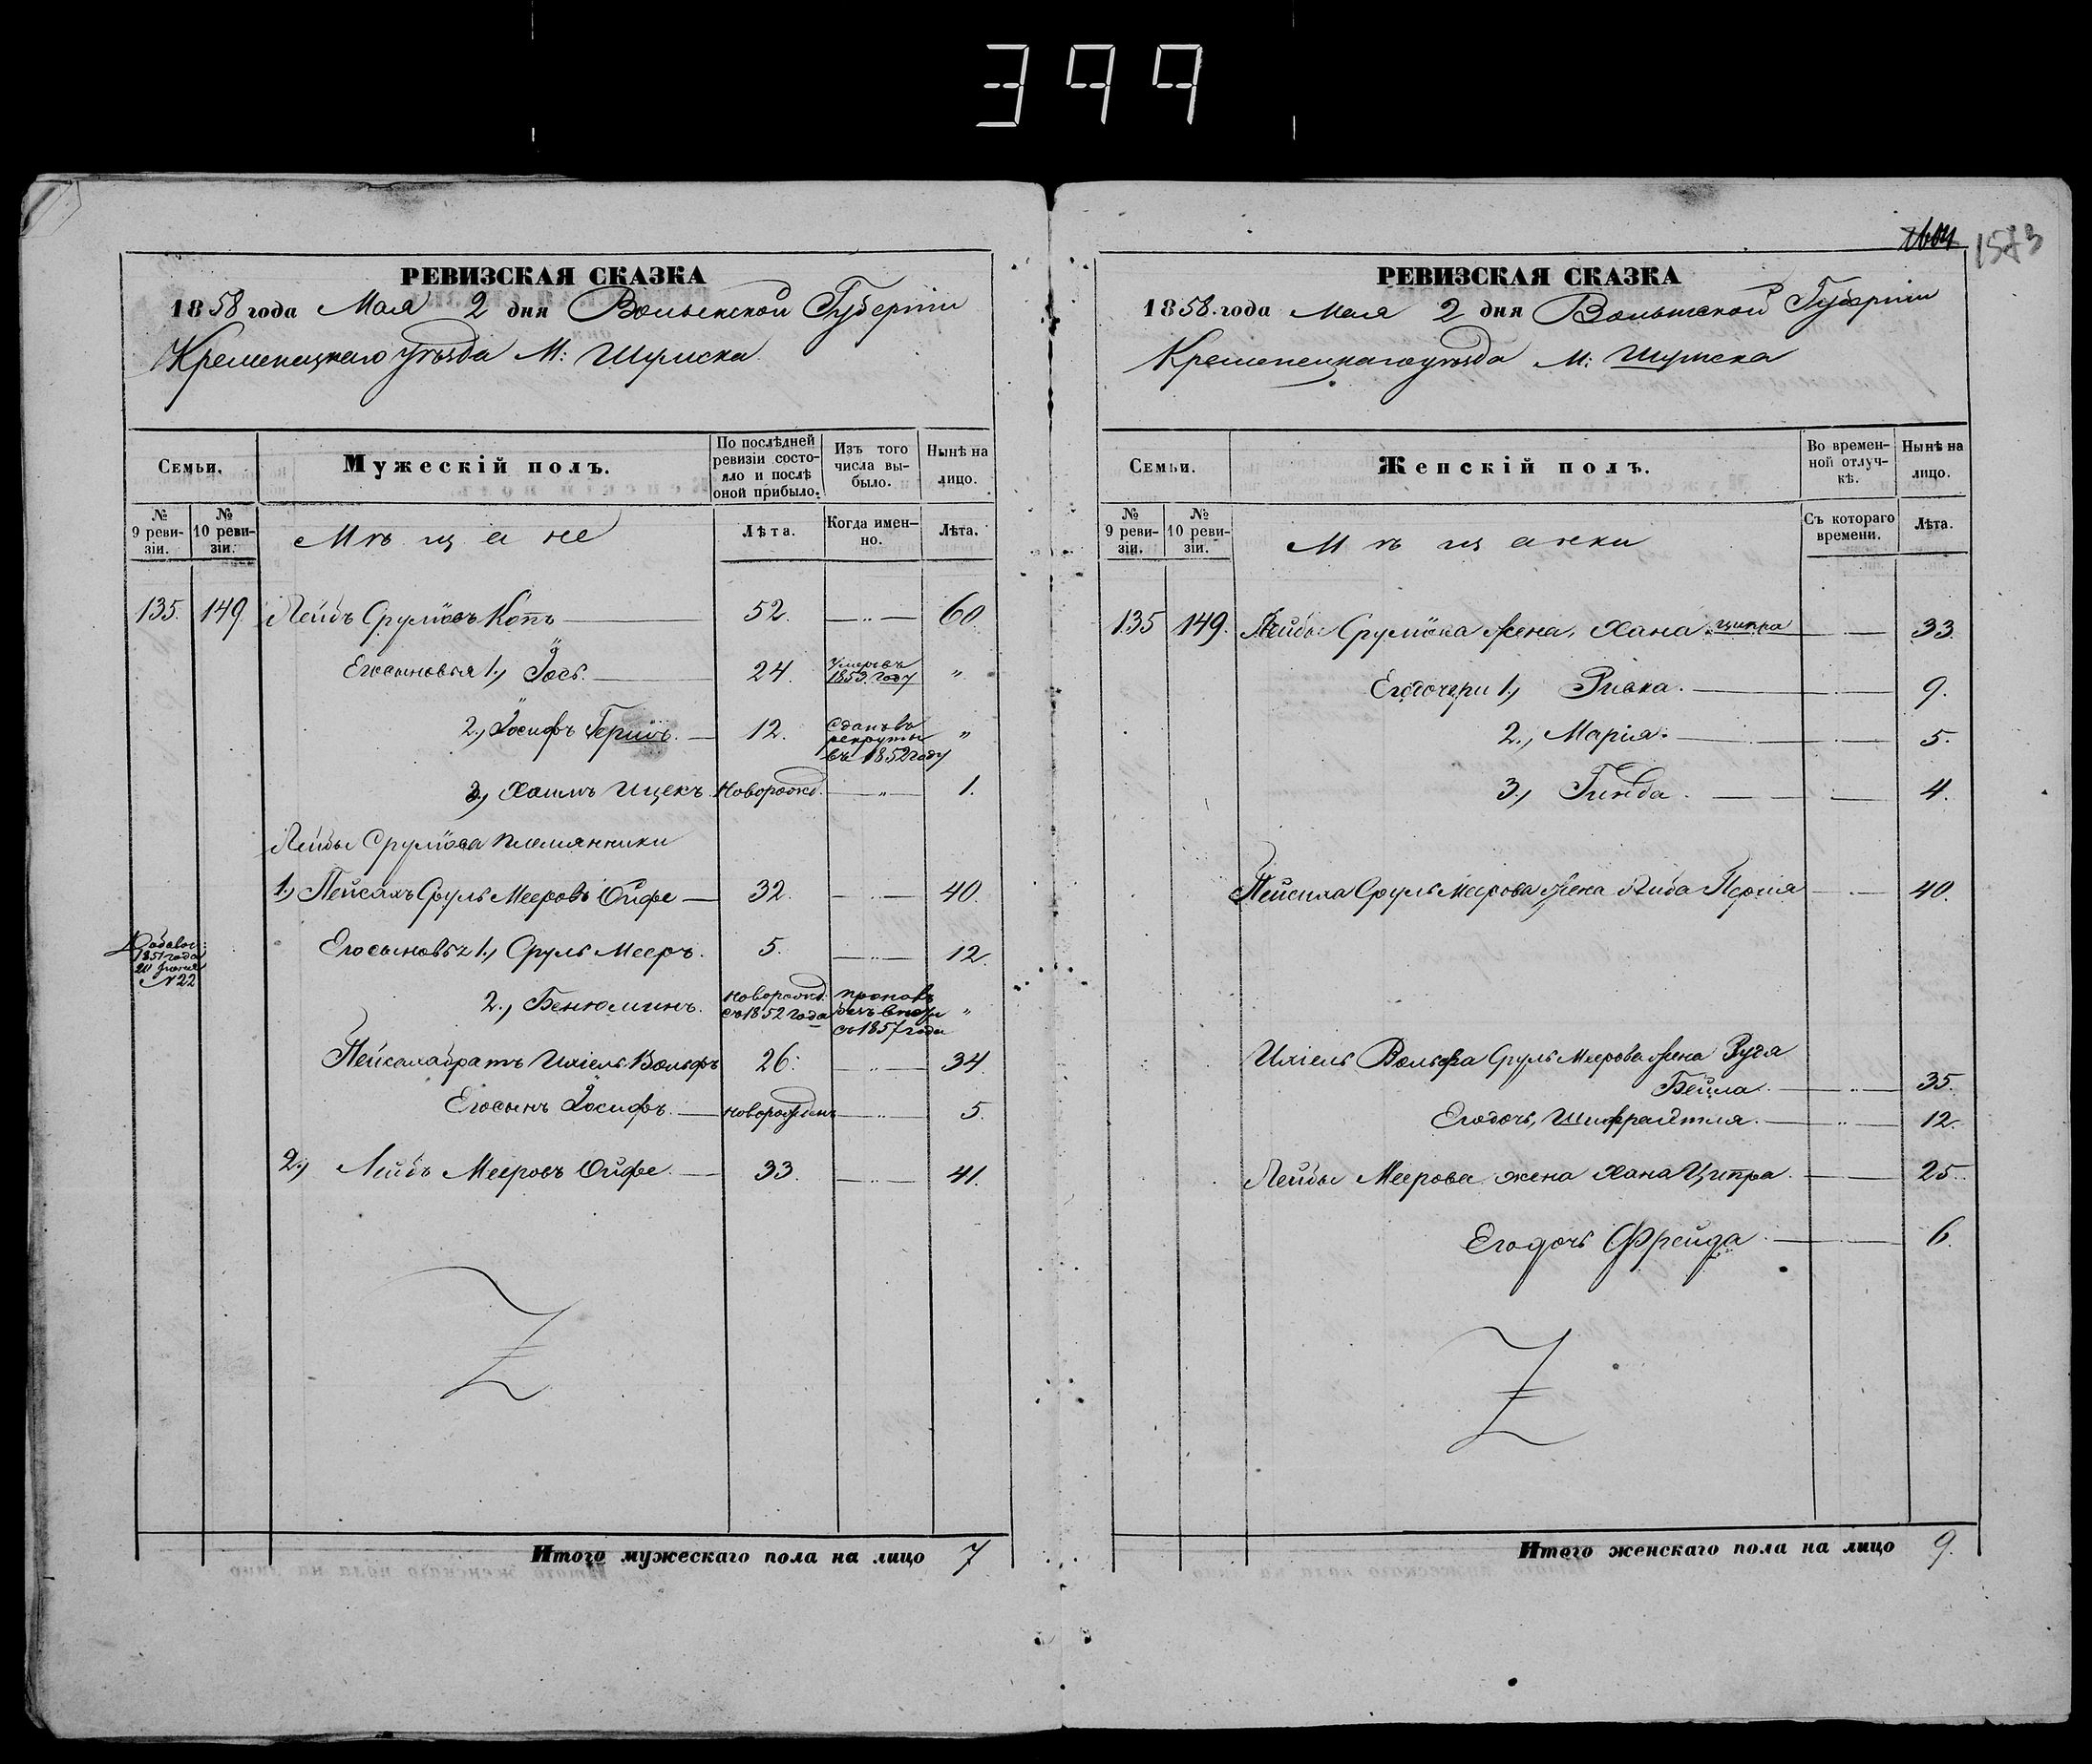 399
1573
РЕВИЗСКАЯ СКАЗКА
1858 года Мая 2 дня Волынской Губерніи
Кременецкаго уѣзда М: Шумска
Семьи.
Мужескій полъ.
По послѣдней ревизіи состояло и послѣ оной прибыло.
Изъ того числа выбыло.
Нынѣ на лицо.
№ 9 ревизіи.
№ 10 ревизіи.
Мѣщане
Лѣта.
Когда именно.
Лѣта.
135. 149 Лейбъ Срулiовъ Копъ 52. — " — 60
Его сыновья 1.) Іось. 24. Умеръ въ 1853. году "
2.) Іосифъ Гершъ. 12. Сданъ въ рекруты въ 1852 году "
3.) Хаимъ Ицекъ. Новорожд. — " — 1.
Лейбы Срулiова племянники
1.) Пейсахъ Сруль Мееровъ Ойфе 32. — " — 40.
Добавоч: 1851 года № 22
Его сыновья 1.) Сруль Мееръ. 5. — " — 12.
2.) Бенюминъ. Новорожд: съ 1852 года съ 1857 года "
Пейсаха братъ Ихіель Вольфъ 26. — " — 34.
Его сынъ Іосифъ. новорожденъ — " — 5.
2.) Лейбъ Мееровъ Ойфе. 33. — " — 41.
Итого мужескаго пола на лицо 7
РЕВИЗСКАЯ СКАЗКА
1858. года Мая 2 дня Волынской Губерніи
Кременецкаго уѣзда М: Шумска
Семьи.
Женскій полъ.
Во временной отлучкѣ.
Нынѣ на лицо.
№ 9 ревизіи.
№ 10 ревизіи.
Мѣщанки
Съ котораго времени.
Лѣта.
135 149. Лейбы Срулiова жена, Хана Ципра 33.
Его дочери 1.) Ривка. 9.
2., Марія. 5.
3., Гинда. 4.
Пейсаха Сруль Меерова жена Либа Перля 40.
Ихіель Вольфа Сруль Меерова жена Рухя
Бейла. 35.
Его дочь, Шифра Итля. 12.
Лейбы Меерова жена Хана Ципра. 25.
Его дочь Фрейда 6.
Итого женскаго пола на лицо 9.